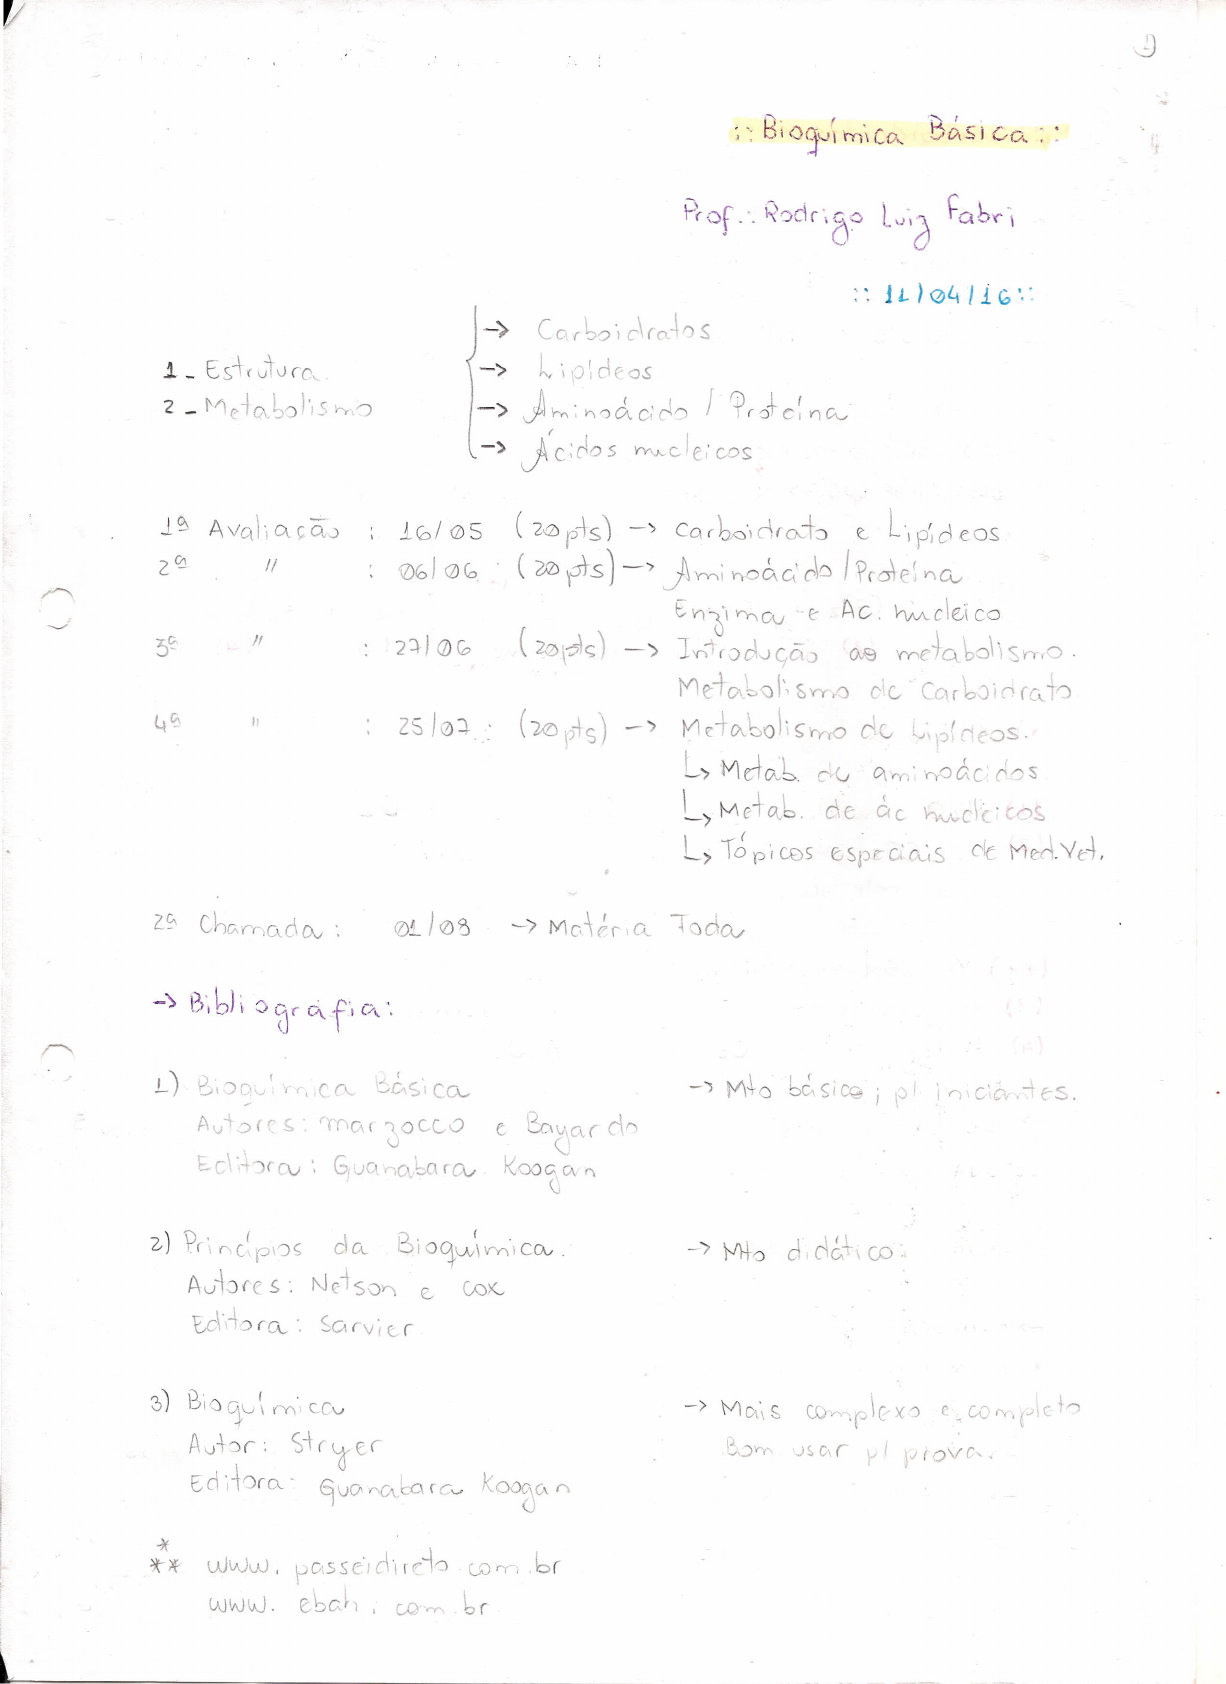 1)
:: Bioquímica Básica ::
Prof.: Rodrigo Luiz Fabri
:: 11/04/16 ::
→ Carboidratos
1 - Estrutura. → Lipídeos
2 - Metabolismo → Aminoácido / Proteína
→ Ácidos nucleicos
1ª Avaliação : 16/05 (20 pts) → Carboidrato e Lipídeos
2ª " : 06/06 (20 pts) → Aminoácido / Proteína
Enzima e Ac. nucleico
3ª " : 27/06 (20 pts) → Introdução ao metabolismo.
Metabolismo de Carboidrato
4ª " : 25/07 : (20 pts) → Metabolismo de Lipídeos.
↳ Metab. de aminoácidos
↳ Metab. de ác nucleicos
↳ Tópicos especiais de Med. Vet.
2ª Chamada : 01/08 → Matéria Toda
→ Bibliografia:
1) Bioquímica Básica → Mto básico ; p/ iniciantes.
Autores: Marzocco e Bayardo
Editora : Guanabara Koogan
2) Princípios da Bioquímica. → Mto didático
Autores: Nelson e Cox
Editora : Sarvier
3) Bioquímica → Mais complexo e completo
Autor : Stryer Bom usar p/ prova.
Editora : Guanabara Koogan
*
** www.passeidireto.com.br
www.ebah.com.br